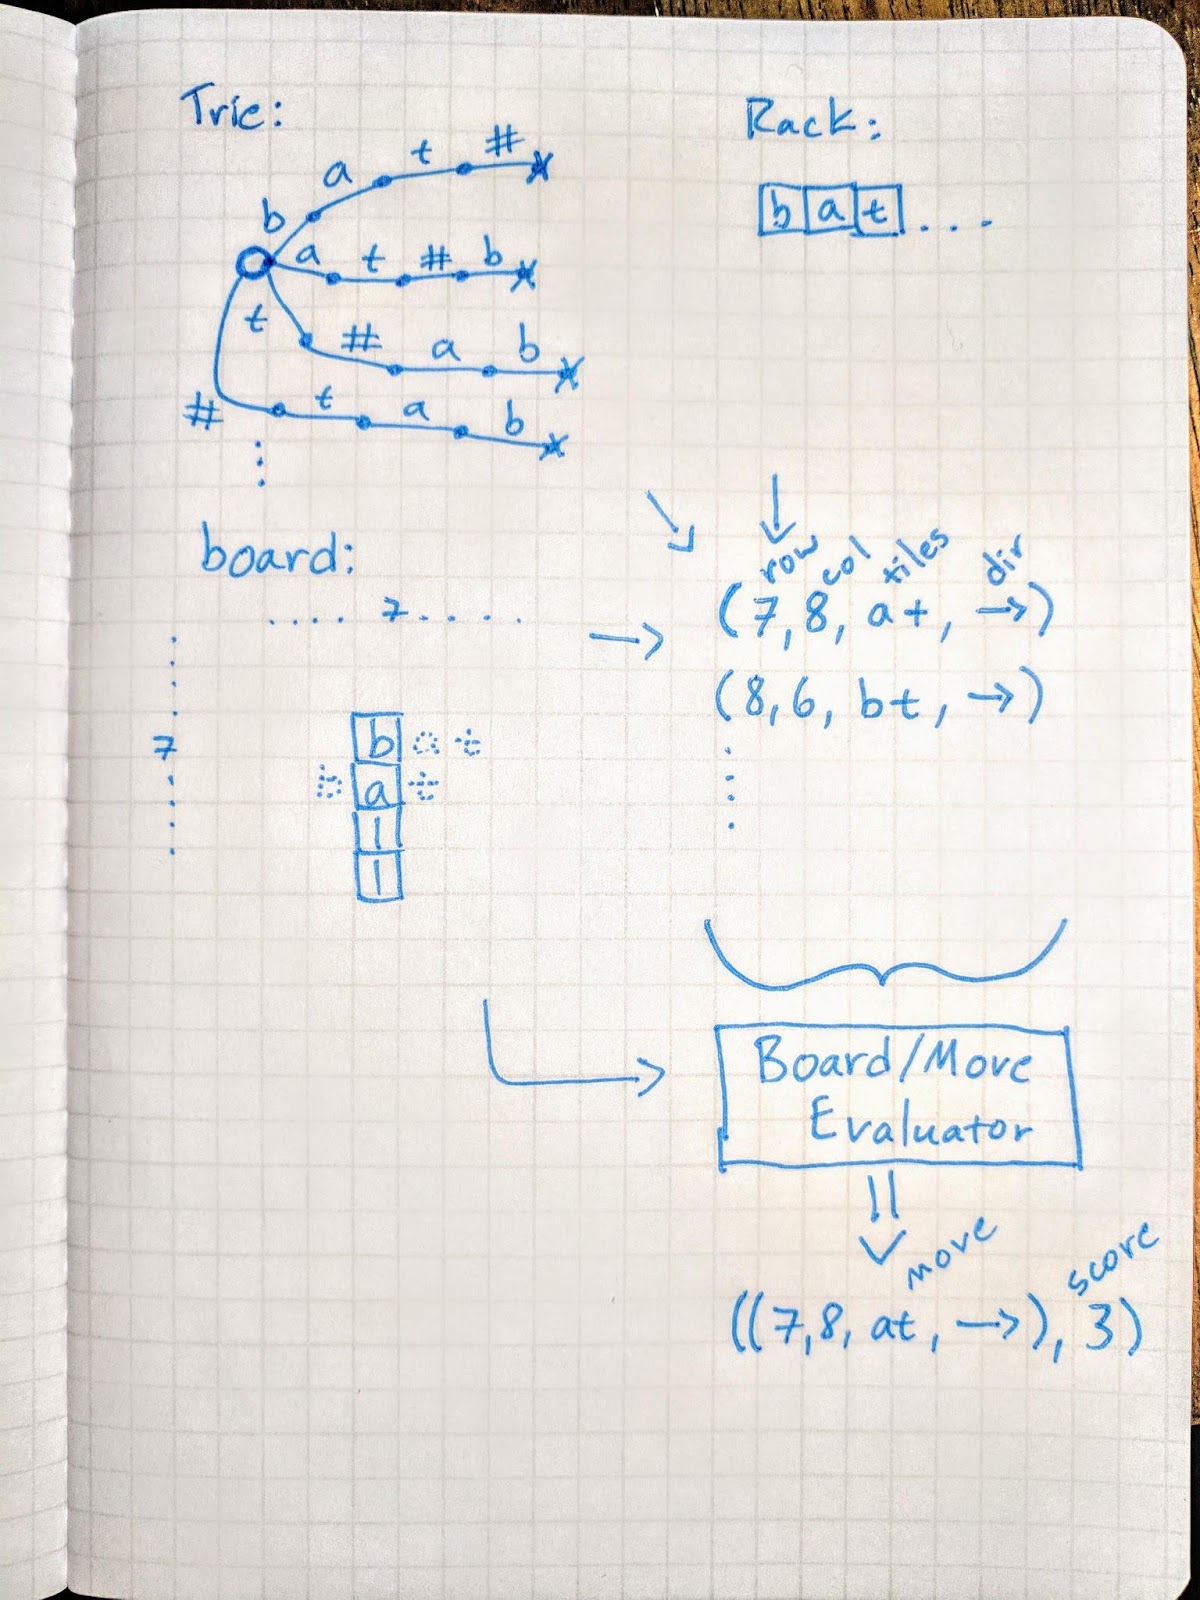 Trie:
Rack:
b a t #
a t # b
t # a b
# t a b
b a t . . .
board:
. . . . 7 . . . .
7
b a t
b a t
l
l
row col tiles dir
(7, 8, at, →)
(8, 6, bt, →)
Board/Move
Evaluator
move score
((7, 8, at, →), 3)